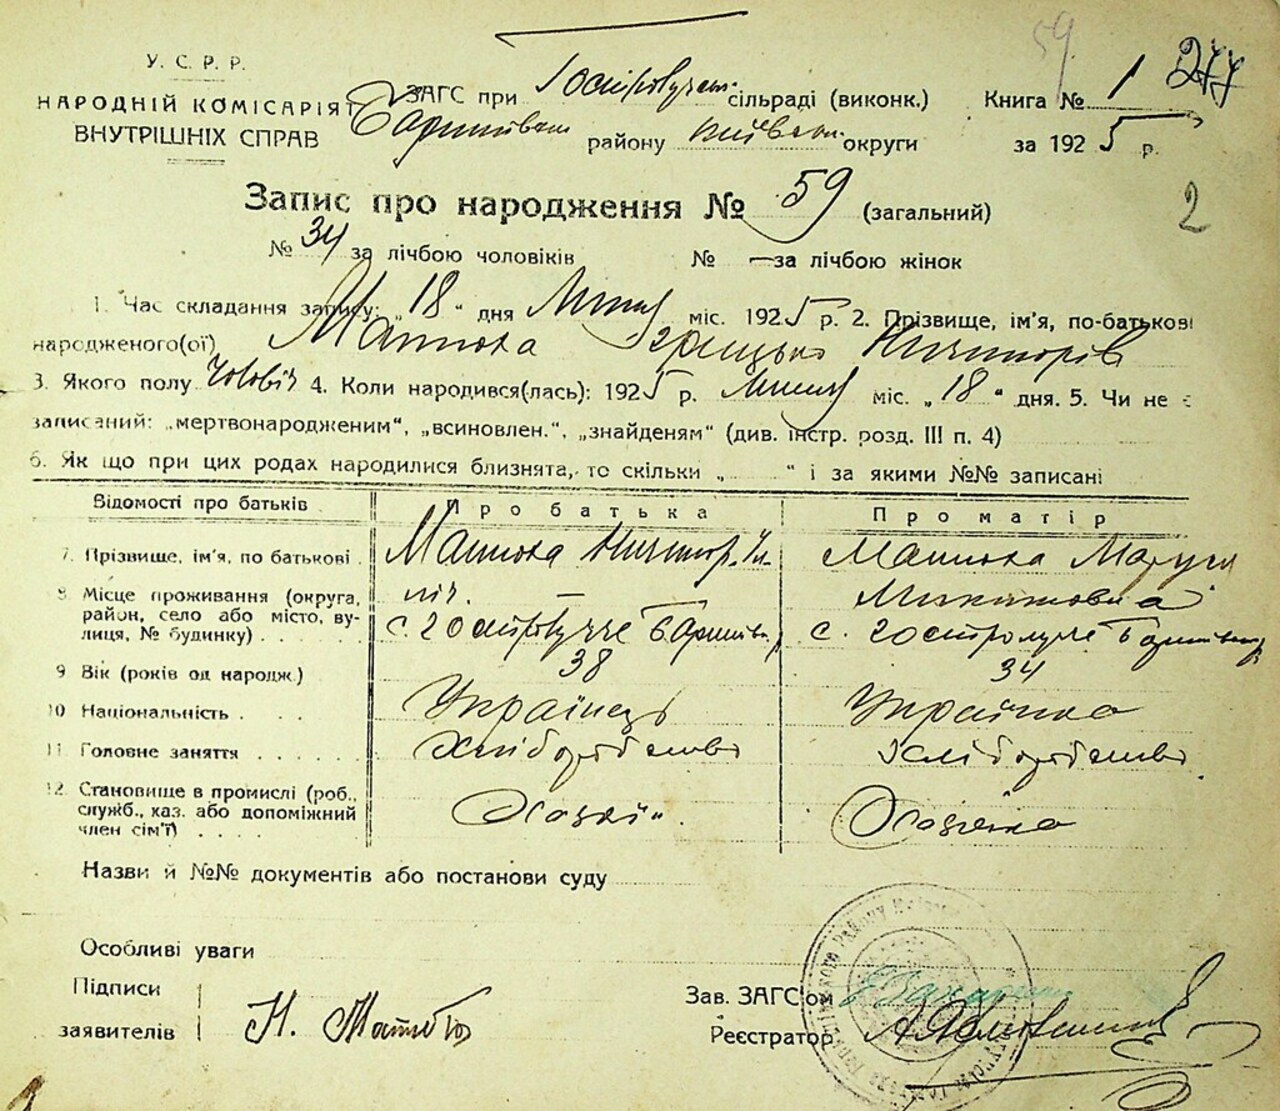 59
1 277
У. С. Р. Р.
НАРОДНІЙ КОМІСАРІЯТ
ВНУТРІШНІХ СПРАВ
ЗАГС при Гостролучан. сільраді (виконк.)
Баришівськ району Київськ. округи
Книга № 1
за 1925 р.
2
Запис про народження № 59 (загальний)
№ 34 за лічбою чоловіків № — за лічбою жінок
1. Час складання запису: „18“ дня Липня міс. 1925 р. 2. Прізвище, ім'я, по-батькові
народженого(ої) Грицько Ничипорів
3. Якого полу Чоловіч 4. Коли народився(лась): 1925 р. Липня міс. „18“ дня. 5. Чи не є
записаний: „мертвонародженим“, „всиновлен.“, „знайденям“ (див. інстр. розд. III п. 4)
6. Як що при цих родах народилися близнята, то скільки „ “ і за якими №№ записані
Відомості про батьків Про батька Про матір
7. Прізвище, ім'я, по батькові Ничипор.
8 Місце проживання (округа, район, село або місто, вулиця, № будинку) с. Гостролуччє Баришів. с. Гостролуччє Баришівськ
9 Вік (років од народж.) 38 34
10 Національність Українець Українка
11 Головне заняття Хліборобство Хліборобство
12. Становище в промислі (роб., служб., хаз. або допоміжний член сім'ї) Хазяїн. Хазяйка
Назви й №№ документів або постанови суду
Особливі уваги
Підписи
заявителів Н.
Зав. ЗАГС'ом
Реєстратор